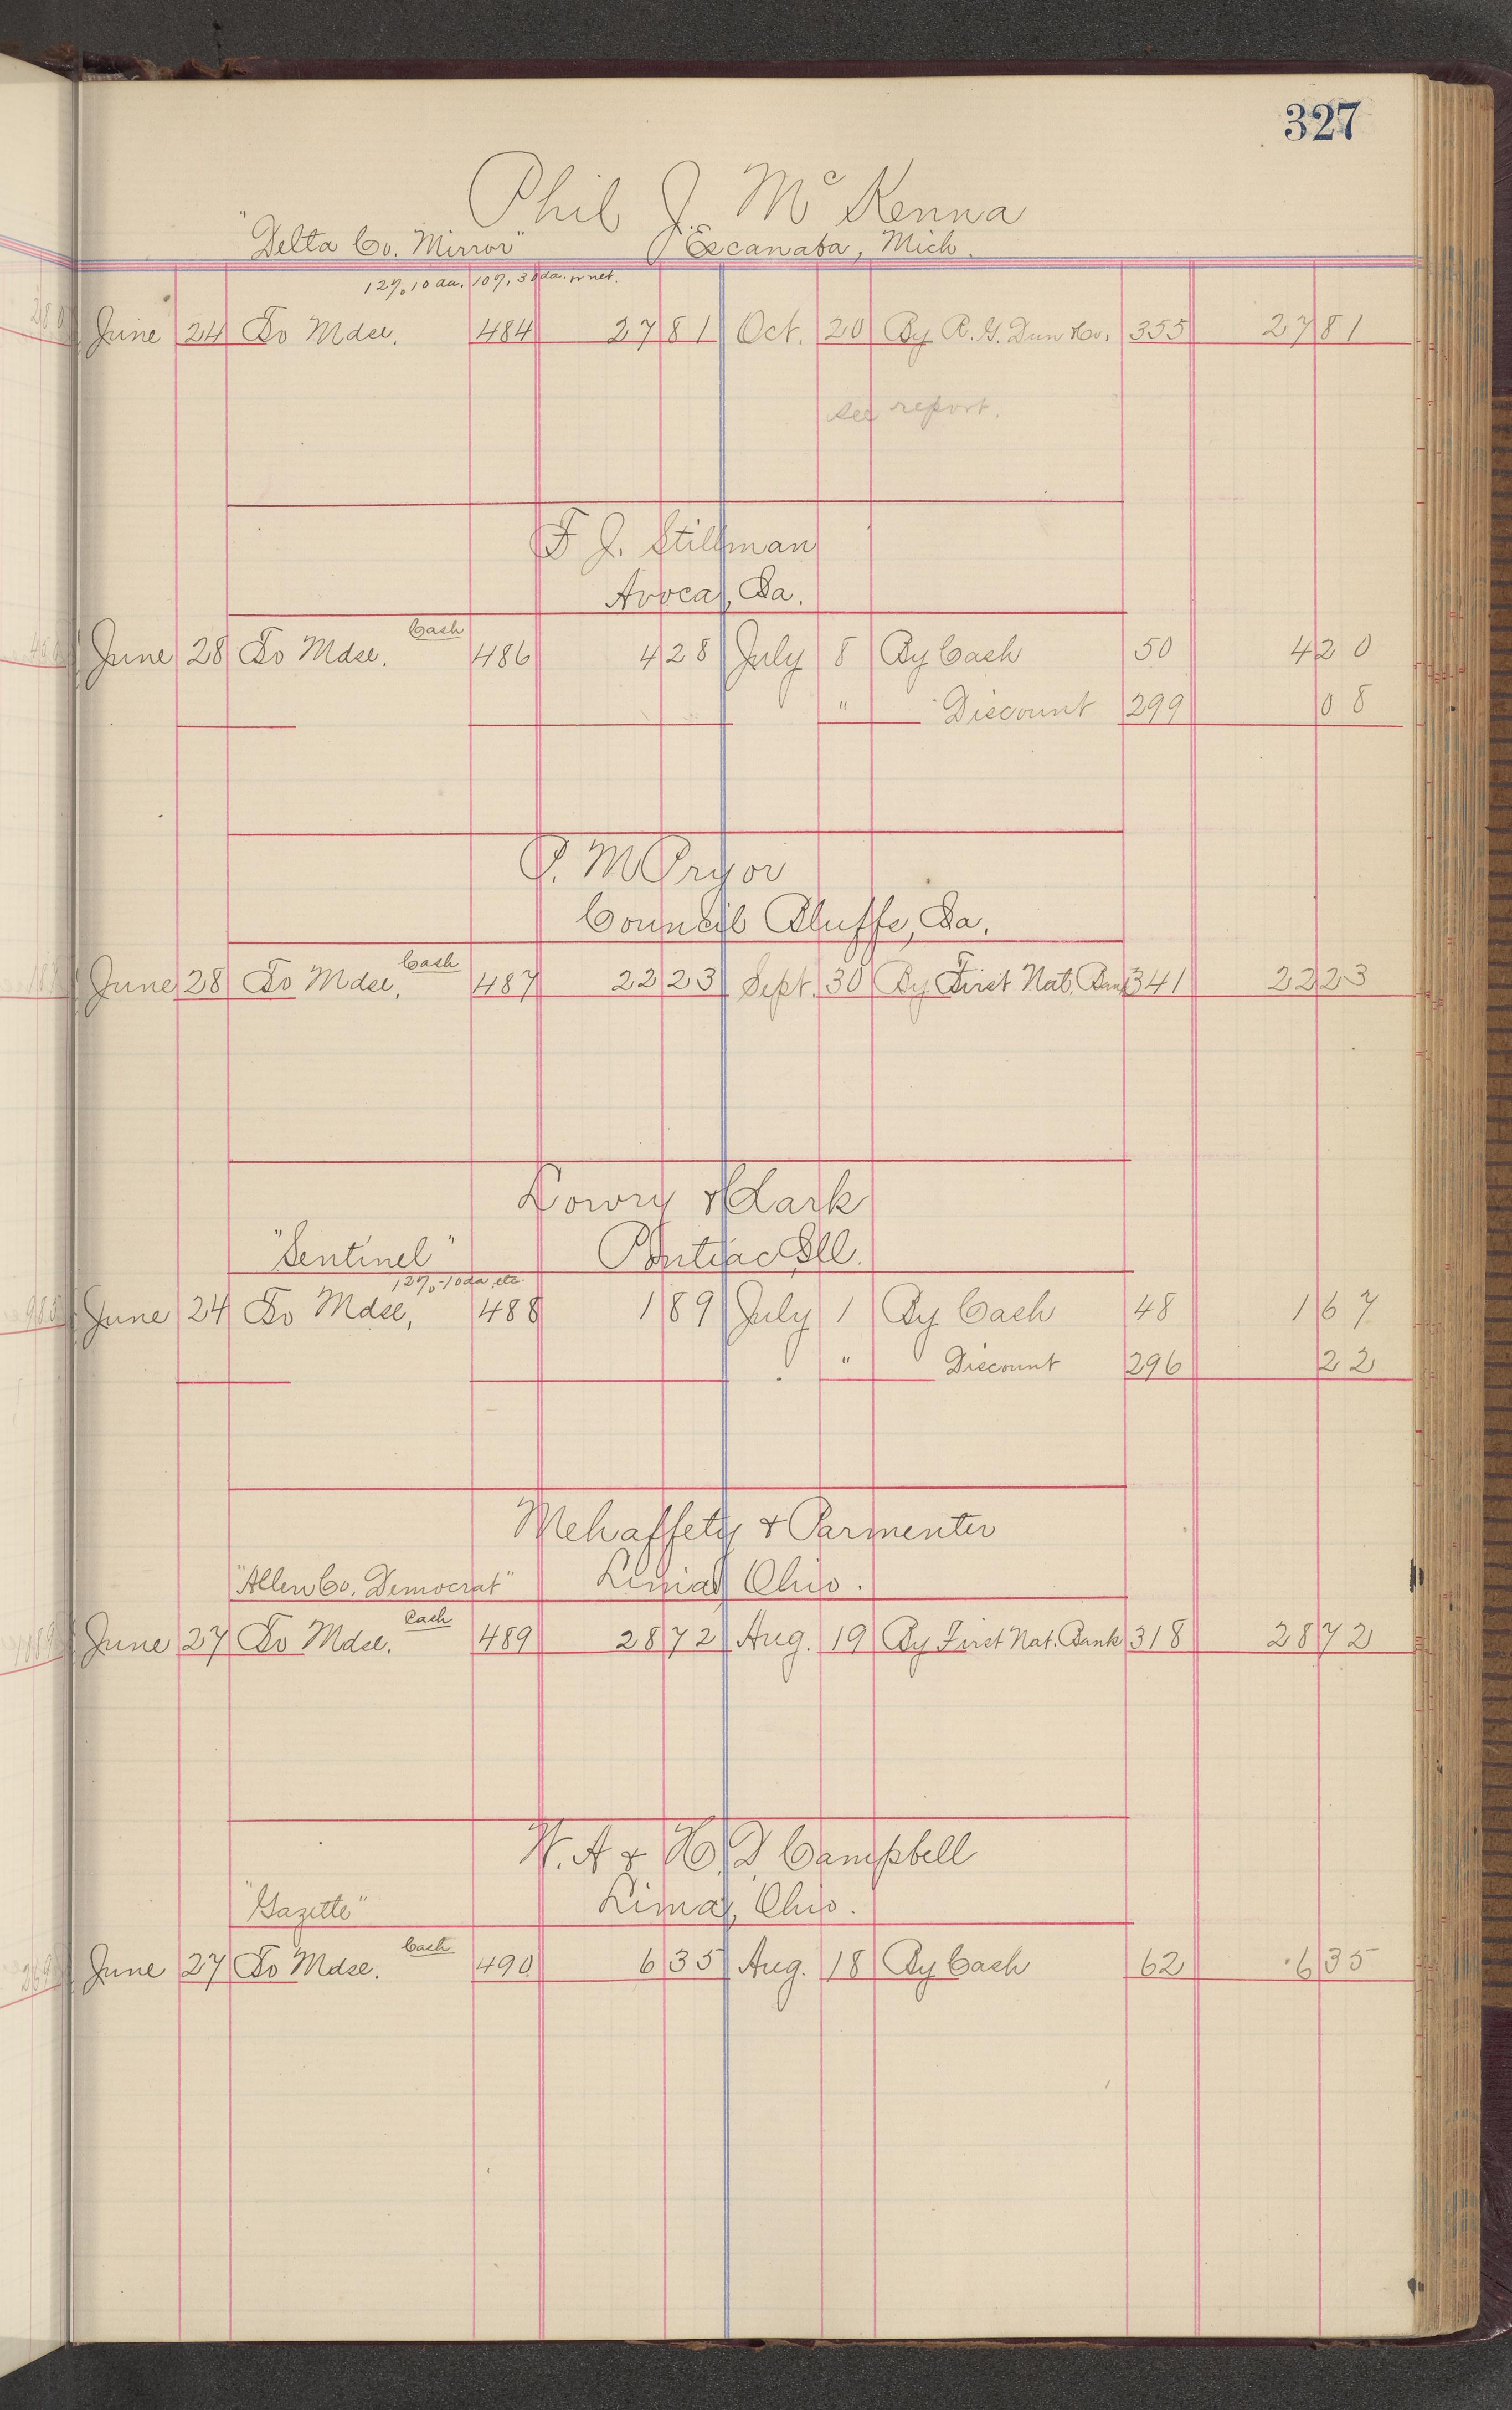 327
Phil J. McKenna
"Delta Co. Mirror" Escanaba, Mich.
12%, 10 da. 10%, 30 da. or net.
June 24 To Mdse. 484 27 81 Oct. 20 By R. G. Dun & Co. 355 27 81
see report.
F J. Stillman
Avoca, Ia.
Cash
June 28 To Mdse. 486 4 28 July 8 By Cash 50 4 20
" Discount 299 08
P. M Pryor
Council Bluffs, Ia.
Cash
June 28 To Mdse, 487 22 23 Sept. 30 By First Nat. Bank 341 22 23
Lowry & Clark
"Sentinel" Pontiac Ill.
12%-10 da etc.
June 24 To Mdse, 488 1 89 July 1 By Cash 48 1 67
" Discount 296 22
Mehaffety & Parmenter
"Allen Co. Democrat" Lima Ohio.
Cash
June 27 To Mdse. 489 28 72 Aug. 19 By First Nat. Bank 318 28 72
W. A & H. D Campbell
"Gazette" Lima, Ohio.
Cash
June 27 To Mdse. 490 6 35 Aug. 18 By Cash 62 6 35